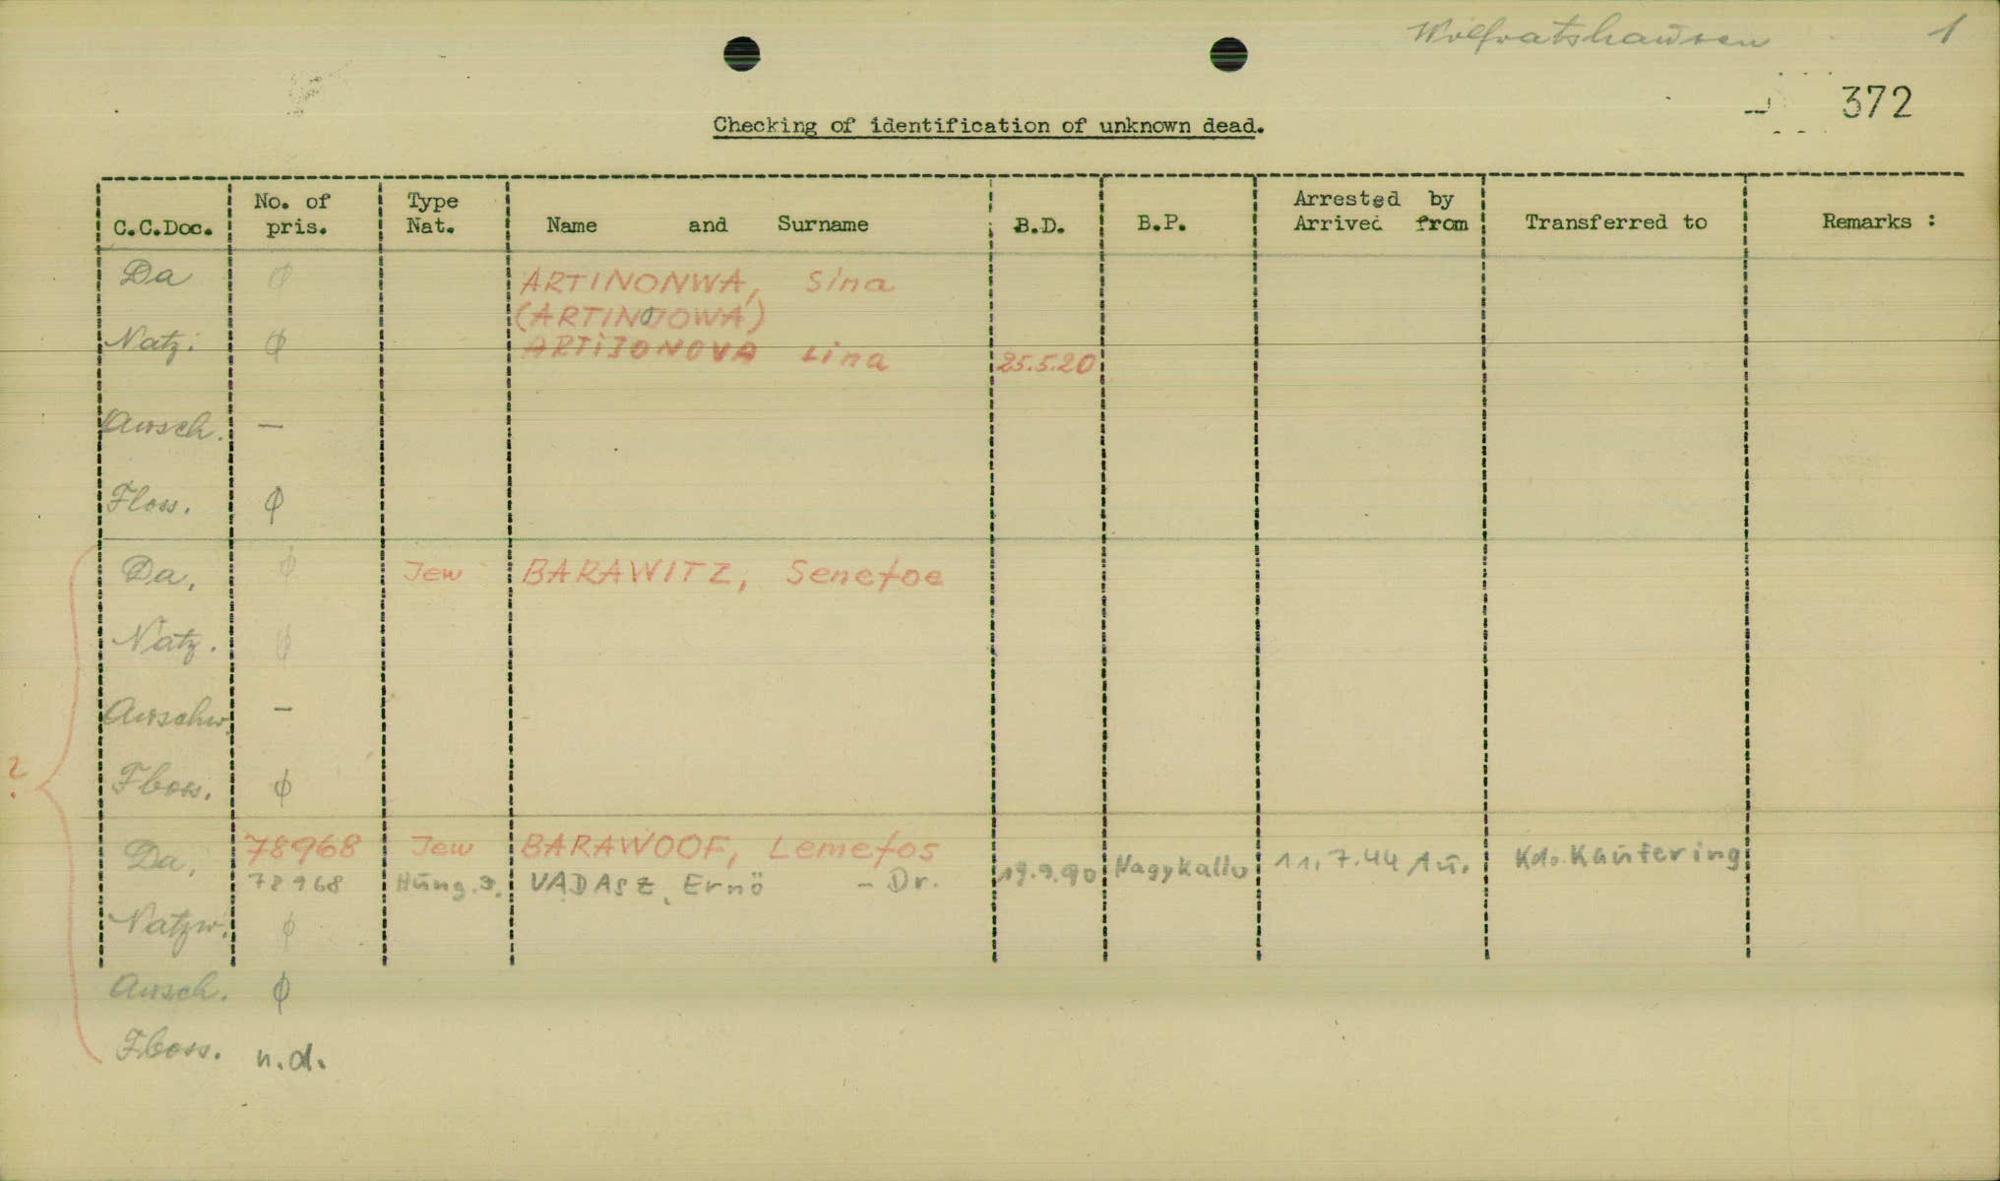 Wolfratshausen 1
372
Checking of identification of unknown dead.
C.C.Doc. No. of pris. Type Nat. Name and Surname B.D. B.P. Arrested by Arrived from Transferred to Remarks :
Da ϕ ARTINONWA, Sina
(ARTINOOWA)
Natz. ϕ ARTIJONOVA Lina 25.5.20
Ausch. –
Floss. ϕ
Da, ϕ Jew BARAWITZ, Senefoe
Natz. ϕ
Auschw. –
? Floss. ϕ
Da, 78968 Jew BARAWOOF, Lemefos
78968 Hung. J. VADASZ, Ernö - Dr. 19.9.90 Nagykallo 11.7.44 Au. Kdo. Kaufering
Natzw. ϕ
Ausch. ϕ
Floss. n.d.